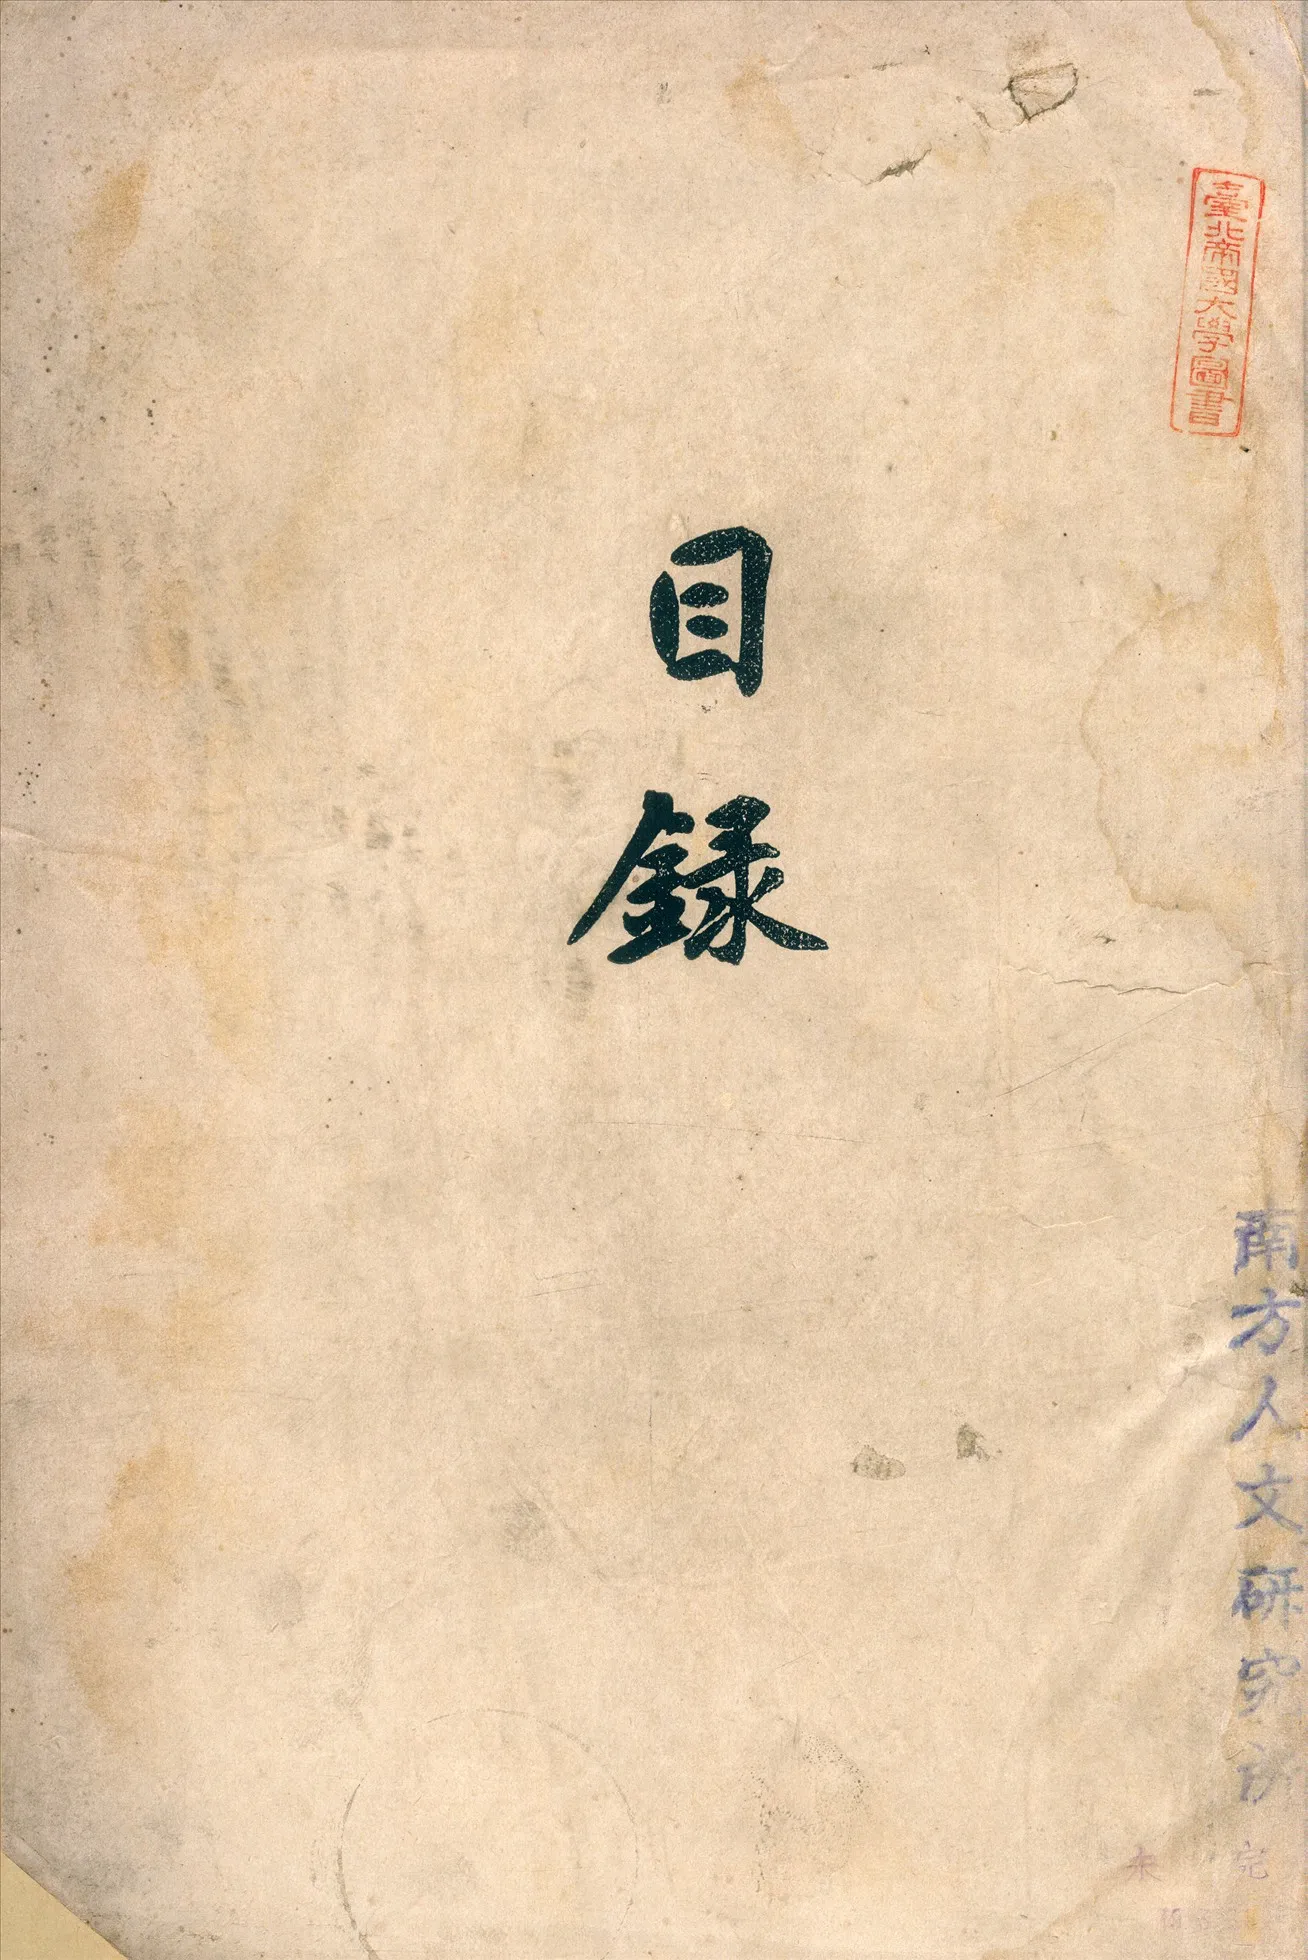 臺北帝國大學圖書
目錄
南方人文研究所